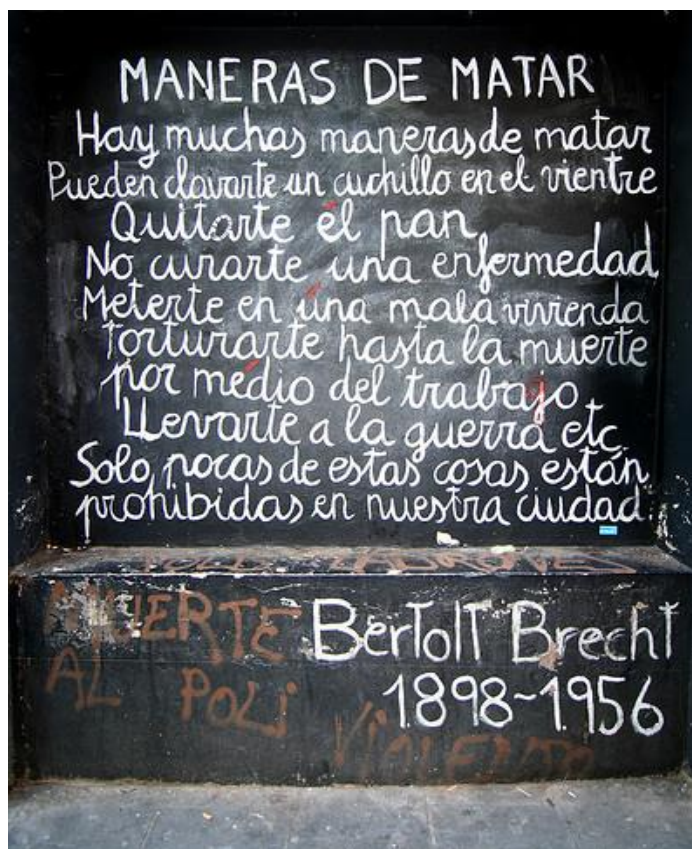 MANERAS DE MATAR
Hay muchas maneras de matar
Pueden clavarte un cuchillo en el vientre
Quitarte el pan
No curarte una enfermedad
Meterte en una mala vivienda
Torturarte hasta la muerte
por medio del trabajo
Llevarte a la guerra etc
Solo pocas de estas cosas están
prohibidas en nuestra ciudad
MUERTE
AL POLI
VIOLENTO
Bertolt Brecht
1898-1956